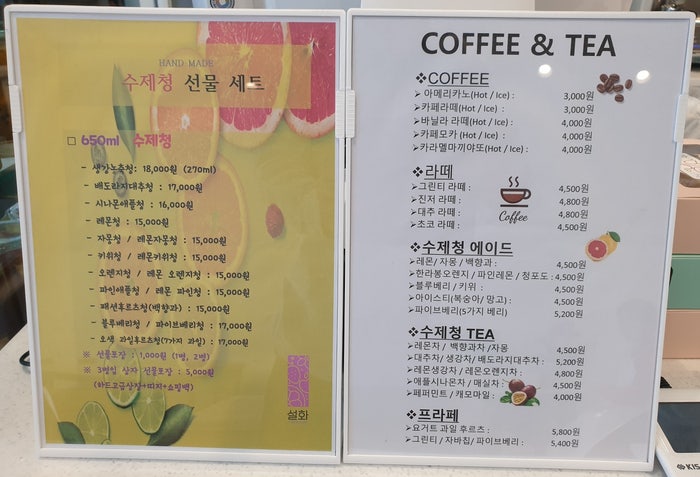 HAND MADE
수제청 선물 세트
□ 650ml 수제청
- 생강농축청: 18,000원 (270ml)
- 배도라지대추청 : 17,000원
- 시나몬애플청 : 16,000원
- 레몬청 : 15,000원
- 자몽청 / 레몬자몽청 : 15,000원
- 키위청 / 레몬키위청 : 15,000원
- 오렌지청 / 레몬 오렌지청 : 15,000원
- 파인애플청 / 레몬 파인청 : 15,000원
- 패션후르츠청(백향과) : 15,000원
- 블루베리청 / 파이브베리청 : 17,000원
- 오색 과일후르츠청(7가지 과일) : 17,000원
※ 선물포장 : 1,000원 (1병, 2병)
※ 3병입 상자 선물포장 : 5,000원
(하드고급상자+띠지+쇼핑백)
설화
COFFEE & TEA
❖COFFEE
➢아메리카노(Hot / Ice) : 3,000원
➢카페라떼(Hot / Ice) : 3,000원
➢바닐라 라떼(Hot / Ice) : 4,000원
➢카페모카 (Hot / Ice) : 4,000원
➢카라멜마끼야또(Hot / Ice) : 4,000원
❖라떼
➢그린티 라떼 : 4,500원
➢진저 라떼 : 4,800원
➢대추 라떼 : 4,800원
➢초코 라떼 : 4,500원
Coffee
❖수제청 에이드
➢레몬/ 자몽 / 백향과 : 4,500원
➢한라봉오렌지 / 파인레몬 / 청포도 : 4,500원
➢블루베리 / 키위 : 4,500원
➢아이스티(복숭아/ 망고) : 4,500원
➢파이브베리(5가지 베리) 5,200원
❖수제청 TEA
➢레몬차/ 백향과차 /자몽 4,500원
➢대추차/ 생강차/ 배도라지대추차 : 5,200원
➢레몬생강차 / 레몬오렌지차 : 4,800원
➢애플시나몬차 / 매실차 : 4,500원
➢페퍼민트 / 캐모마일 : 4,000원
❖프라페
➢요거트 과일 후르츠 : 5,800원
➢그린티 / 자바칩/ 파이브베리 : 5,400원
KIS